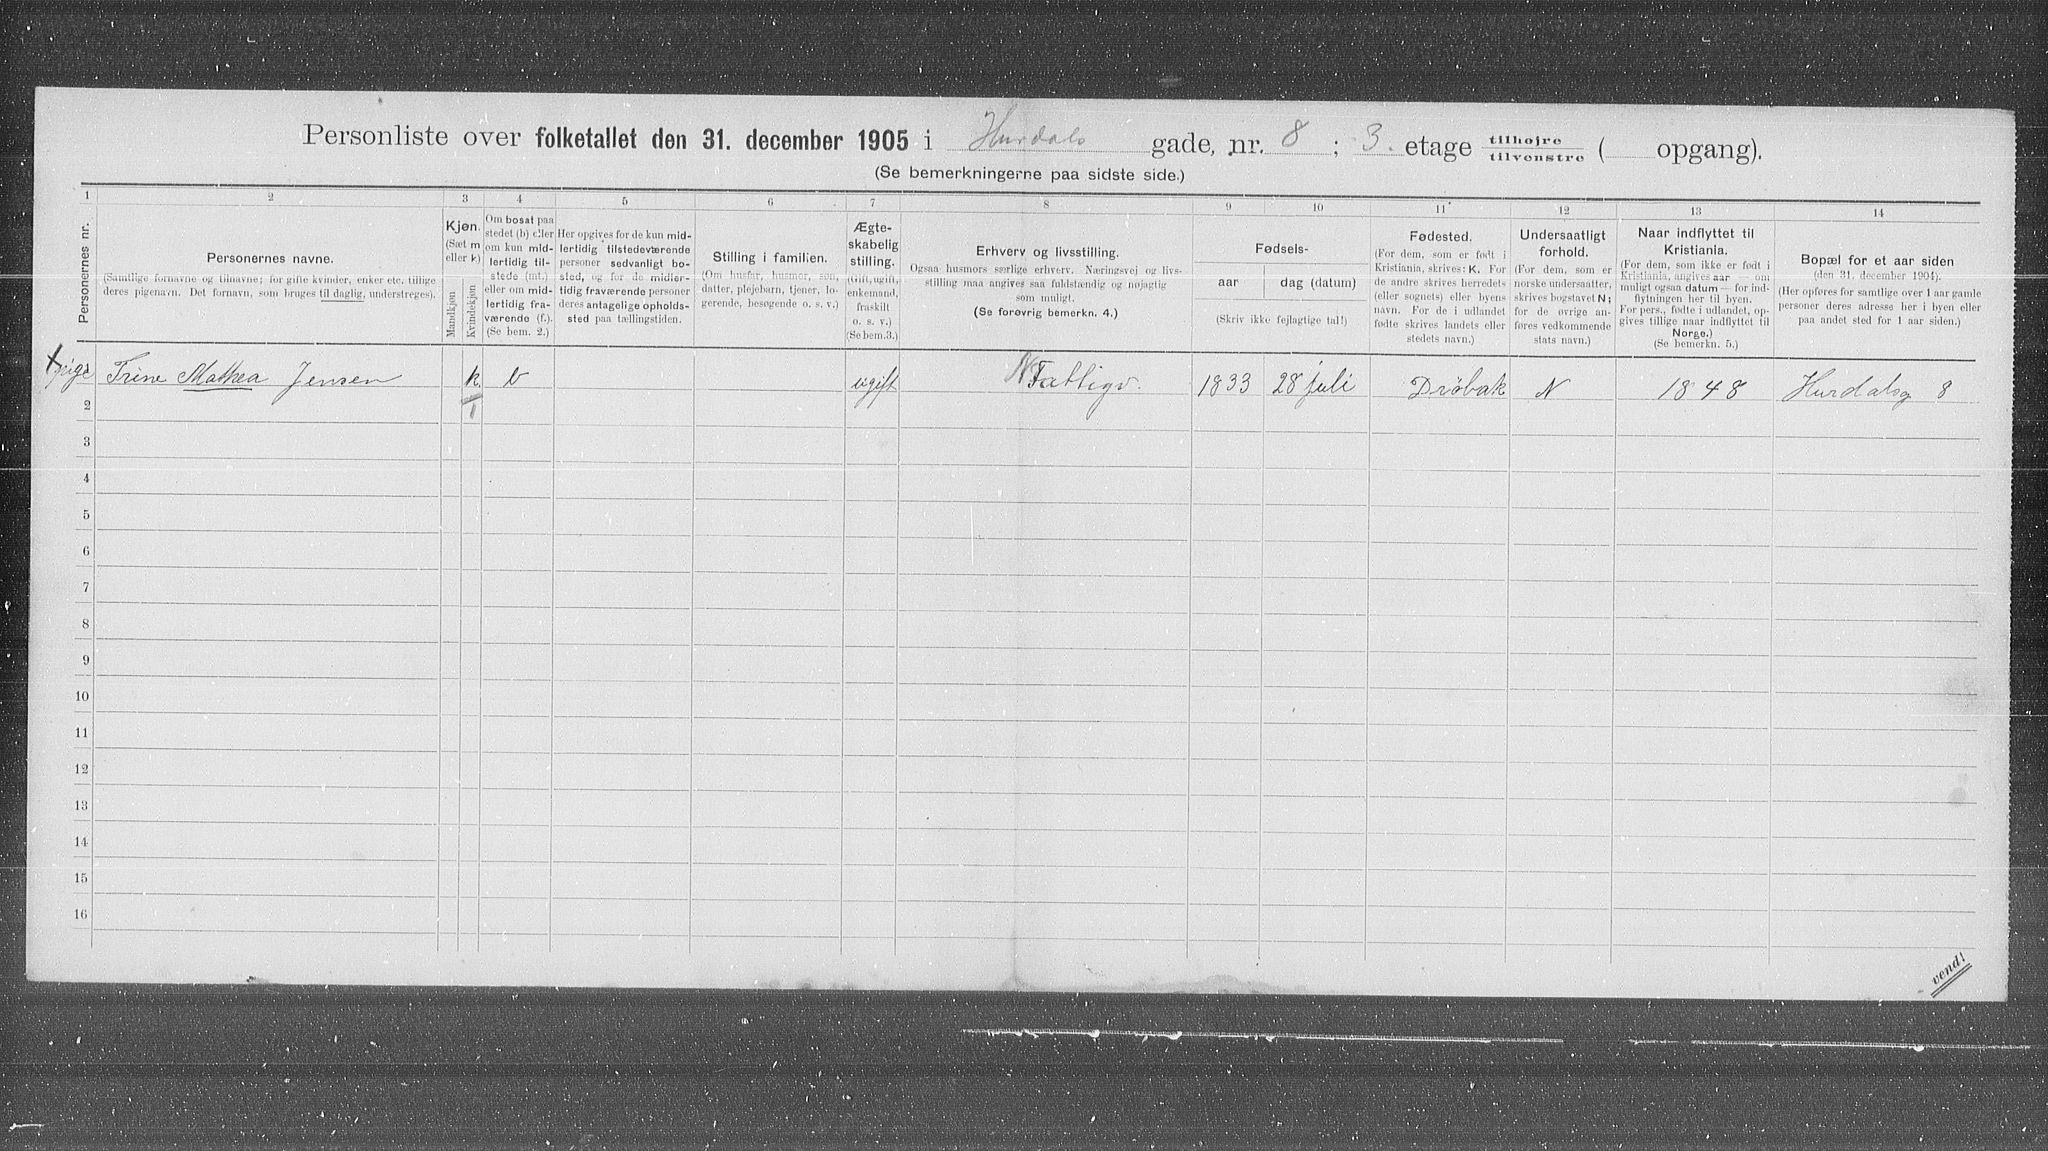 Personliste over folketallet den 31. december 1905 i Hurdals gade, nr. 8 ; 3. etage tilhøjre tilvenstre ( opgang).
(Se bemerkningerne paa sidste side.)
1 2 3 4 5 6 7 8 9 10 11 12 13 14
Personernes nr.
Personernes navne.
(Samtlige fornavne og tilnavne; for gifte kvinder, enker etc. tillige
deres pigenavn. Det fornavn, som bruges til daglig, understreges).
Kjøn.
(Sæt m
eller k)
Mandkjøn
Kvindekjøn
Om bosat paa
stedet (b) eller
om kun mid-
lertidig til-
stede (mt.)
eller om mid-
lertidig fra-
værende (f.).
(Se bem. 2.)
Her opgives for de kun mid-
lertidig tilstedeværende
personer sedvanligt bo-
sted, og for de midler-
tidig fraværende personer
deres antagelige opholds-
sted paa tællingstiden.
Stilling i familien.
(Om husfar, husmor, søn,
datter, plejebarn, tjener, lo-
gerende, besøgende o. s. v.)
Ægte-
skabelig
stilling.
(Gift, ugift,
enkemand,
fraskilt
o. s. v.)
(Se bem.3.)
Erhverv og livsstilling.
Ogsaa husmors særlige erhverv. Næringsvej og livs-
stilling maa angives saa fuldstændig og nøjagtig
som muligt.
(Se forøvrig bemerkn. 4.)
Fødsels-
aar dag (datum)
(Skriv ikke fejlagtige tal!)
Fødested.
(For dem, som er født i
Kristiania, skrives: K. For
de andre skrives herredets
(eller sognets) eller byens
navn. For de i udlandet
fødte skrives landets eller
stedets navn.)
Undersaatligt
forhold.
(For dem, som er
norske undersaatter,
skrives bogstavet N;
for de øvrige an-
føres vedkommende
stats navn.)
Naar indflyttet til
Kristiania.
(For dem, som ikke er født i
Kristiania, angives aar — om
muligt ogsaa datum — for ind-
flytningen her til byen.
For pers., fødte i udlandet, op-
gives tillige naar indflyttet til
Norge.)
(Se bemerkn. 5.)
Bopæl for et aar siden
(den 31. december 1904).
(Her opføres for samtlige over 1 aar gamle
personer deres adresse her i byen eller
paa andet sted for 1 aar siden.)
Trine Mathea Jensen k b ugift Fattigv. 1833 28 juli Drøbak N 1848 Hurdalsg 8
2 1
3
4
5
6
7
8
9
10
11
12
13
14
15
16
vend!